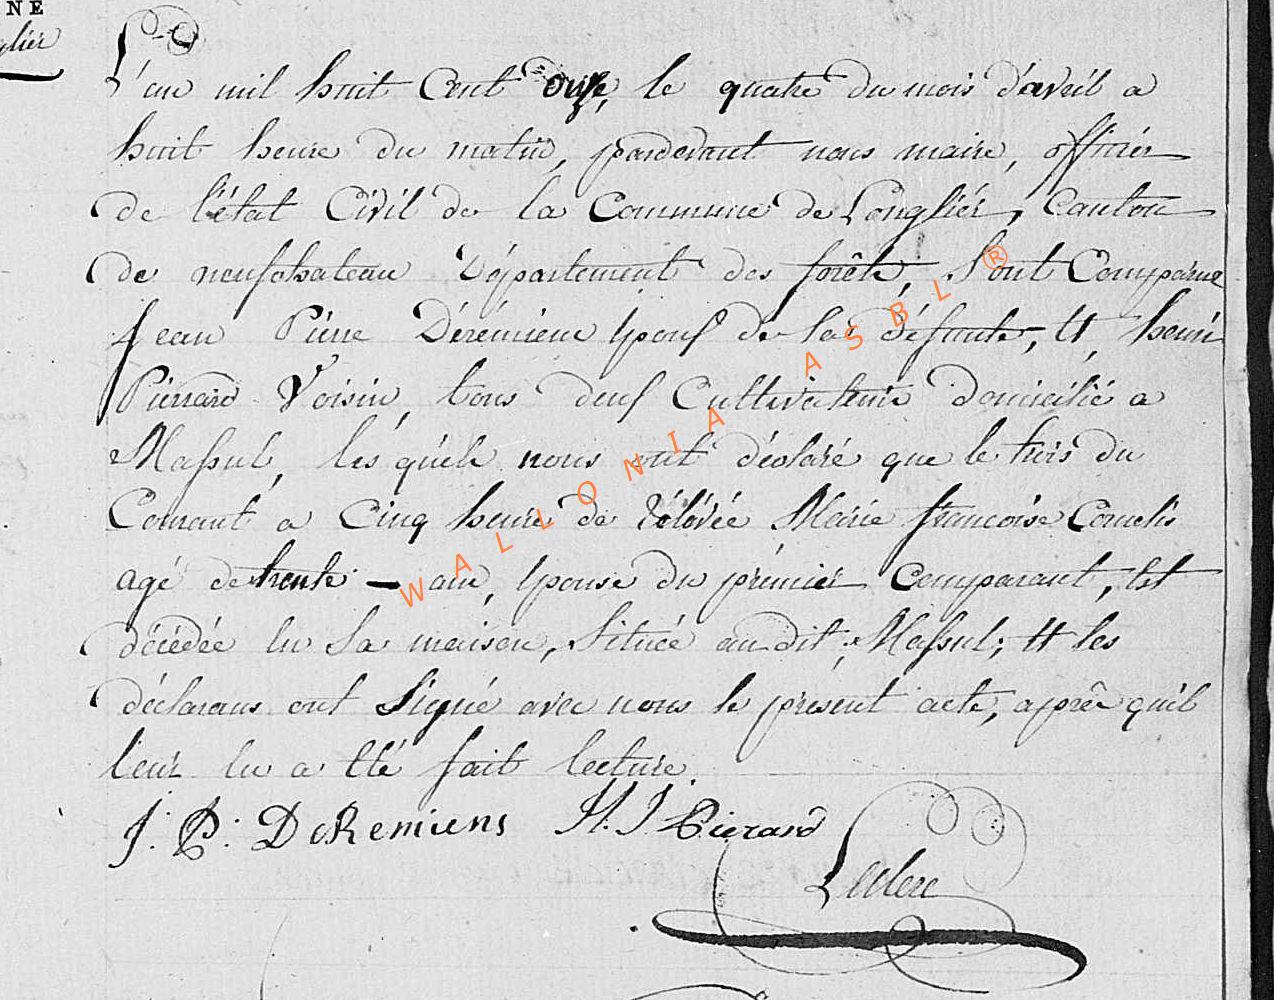 NE
glier
L'an mil huit Cent onze, le quatre du mois d'avril a
huit heure du matin, pardevant nous maire, officier
de l'état Civil de la Commune de Longlier, Canton
de neufchateau Département des forêts, Sont Comparue
Jean Pierre Dérémiens Epoux de la défunte, Et, henri
Pierrard Voisin, tous deux Cultivateurs domicilié a
Massul, les quels nous ont déclaré que le trois du
Courant a Cinq heure de rélévée Marie francoise Cornelis
agé de trente — ans, Epouse du prémier Comparant, Est
décédée En Sa maison, Située audit Massul; Et les
déclarans ont Signé avec nous le présent acte, après qu'il
leur En a Eté fait lecture.
J. P. DeRemiens H. J. Pierard
Leclerc
WALLONIA ASBL ®